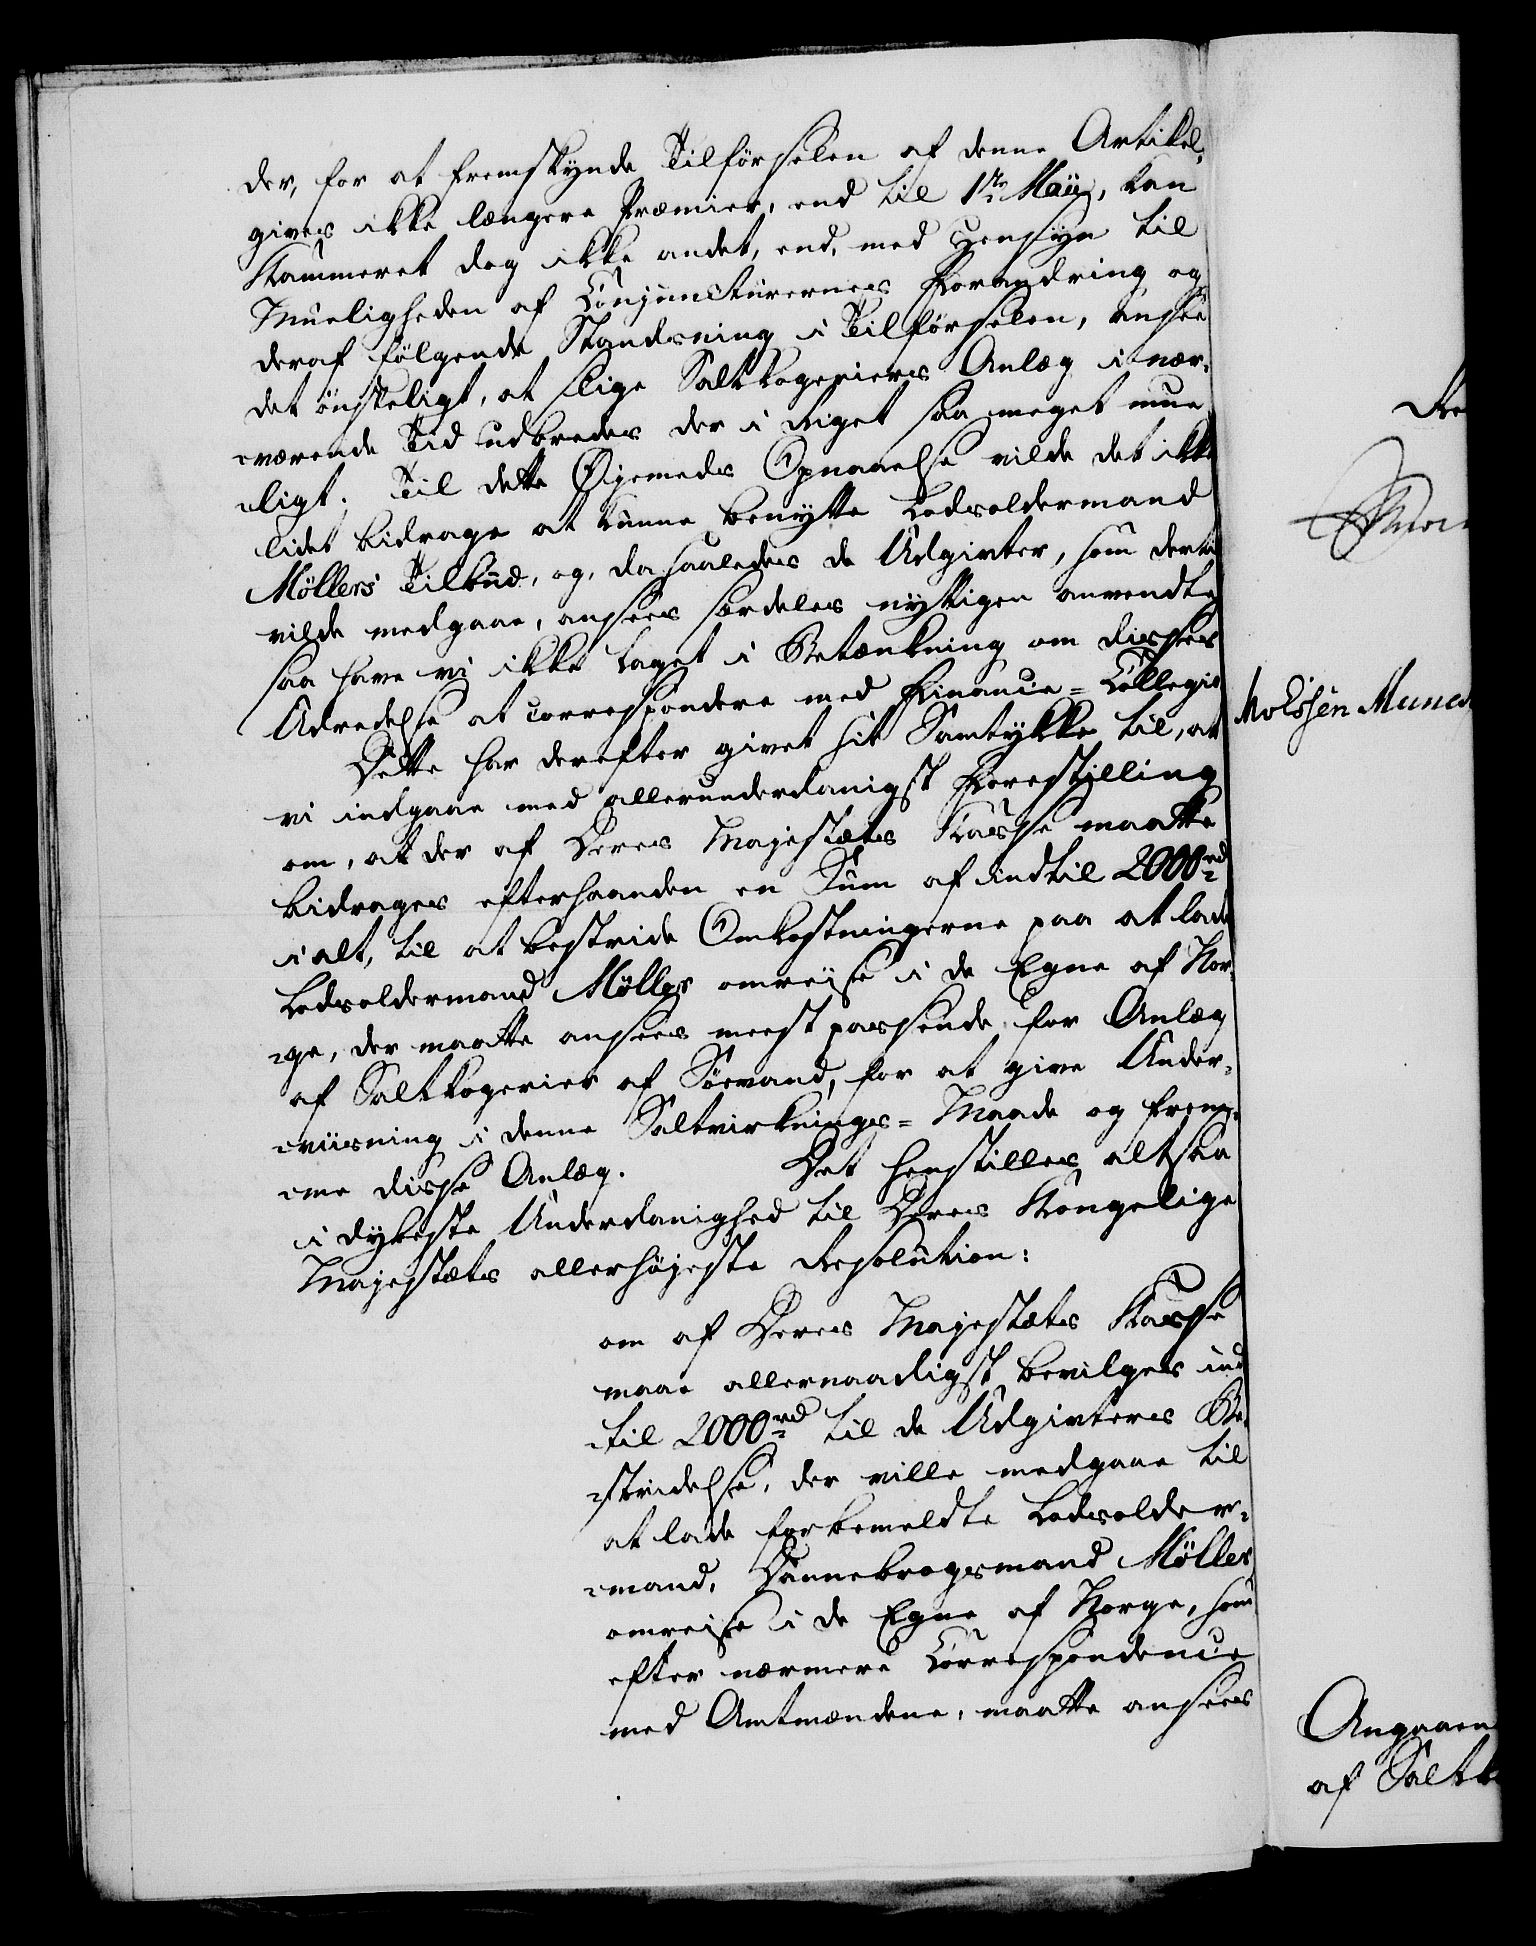 der, for at fremskynde Tilførselen af denne Artikel,
gives ikke længere Præmier, end til 1te Maii, kan
Kammeret dog ikke andet, end, med Hensyn til
Mueligheden af Conjuncturernes Forandring og
deraf følgende Standsning i Tilførselen, ansee
det ønskeligt, at slige Saltkogeriers Anlæg i nær-
-værende Tid udbredes der i Riget saa meget mue-
-ligt. Til dette Øjemeds Opnaaelse vilde det ikke
lidet bidrage at kunne benytte Lodsoldermand
Möllers Tilbud, og, da saaledes de Udgivter, som dertil
vilde medgaae, ansees særdeles nyttigen anvendte
saa have vi ikke taget i Betænkning om disses
Udredelse at correspondere med Finance-Collegiet
Dette har derefter givet sit Samtykke til, at
vi indgaae med allerunderdanigst Forestilling
om, at der af Deres Majestæts Kasse maatte
bidrages efterhaanden en Sum af indtil 2000rd
i alt, til at bestride Omkostningerne paa at lade
Lodsoldermand Möller omrejse i de Egne af Nor-
-ge, der maatte ansees meest passende for Anlæg
af Saltkogerier af Søevand, for at give Under-
-viisning i denne Saltvirknings-Maade og frem-
-me disse Anlæg. Det henstilles altsaa
i dybeste Underdanighed til Deres Kongelige
Majestæts allerhøjeste Resolution:
om af Deres Majestæts Kasse
maae allernaadigst bevilges ind-
-til 2000rd til de Udgivters Be-
-stridelse, der ville medgaae til
at lade forbemeldte Lodsolder-
-mand, Dannebrogsmand Möller
omreise i de Egne af Norge, som
efter nærmere Correspondence
med Amtmændene, maatte ansees
Re
Moessen
Angaaen
af Saltk